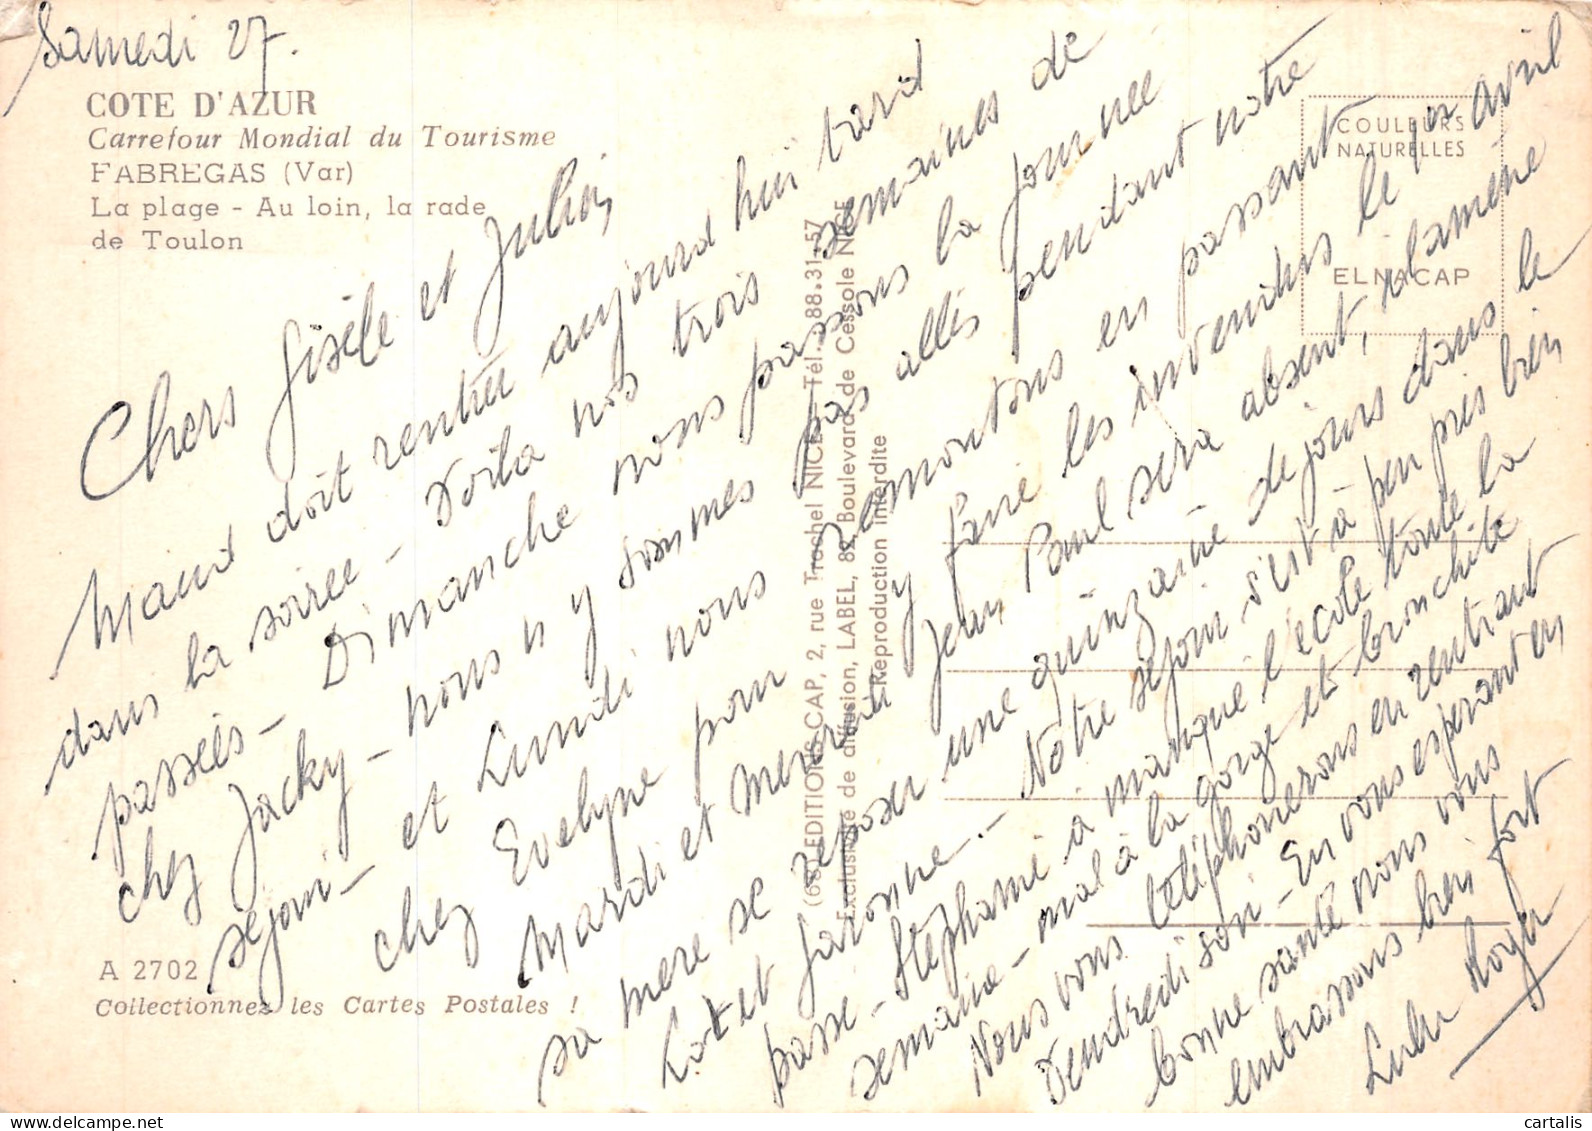 Samedi 27.
COTE D'AZUR
Carrefour Mondial du Tourisme
FABREGAS (Var)
La plage - Au loin, la rade
de Toulon
Chers Gisèle et Julien,
Maud doit rentrer aujourd hui tard
dans la soirée - Voilà nos trois semaines de
passées - Dimanche nous passons la journée
chez Jacky - nous n'y sommes pas allés pendant notre
séjour - et Lundi nous remontons en passant
chez Evelyne pour y faire les invendus le 1er avril
Mardi et Mercredi Jean Paul sera absent, il amène
sa mère se reposer une quinzaine de jours dans le
Lot et Garonne. - Notre séjour s'est à peu près bien
passé - Stéphanie a manqué l'école toute la
semaine - mal à la gorge et bronchite
Nous vous téléphonerons en rentrant
Vendredi soir - En vous espérant en
bonne santé nous vous
embrassons bien fort
Lulu Roger
COULEURS
NATURELLES
ELNACAP
(68) EDITIONS CAP, 2, rue Trachel NICE - Tél. 88.31-57
Exclusivité de diffusion, LABEL, 82 Boulevard de Cessole NICE
Reproduction interdite
A 2702
Collectionnez les Cartes Postales !
cartalis
www.delcampe.net